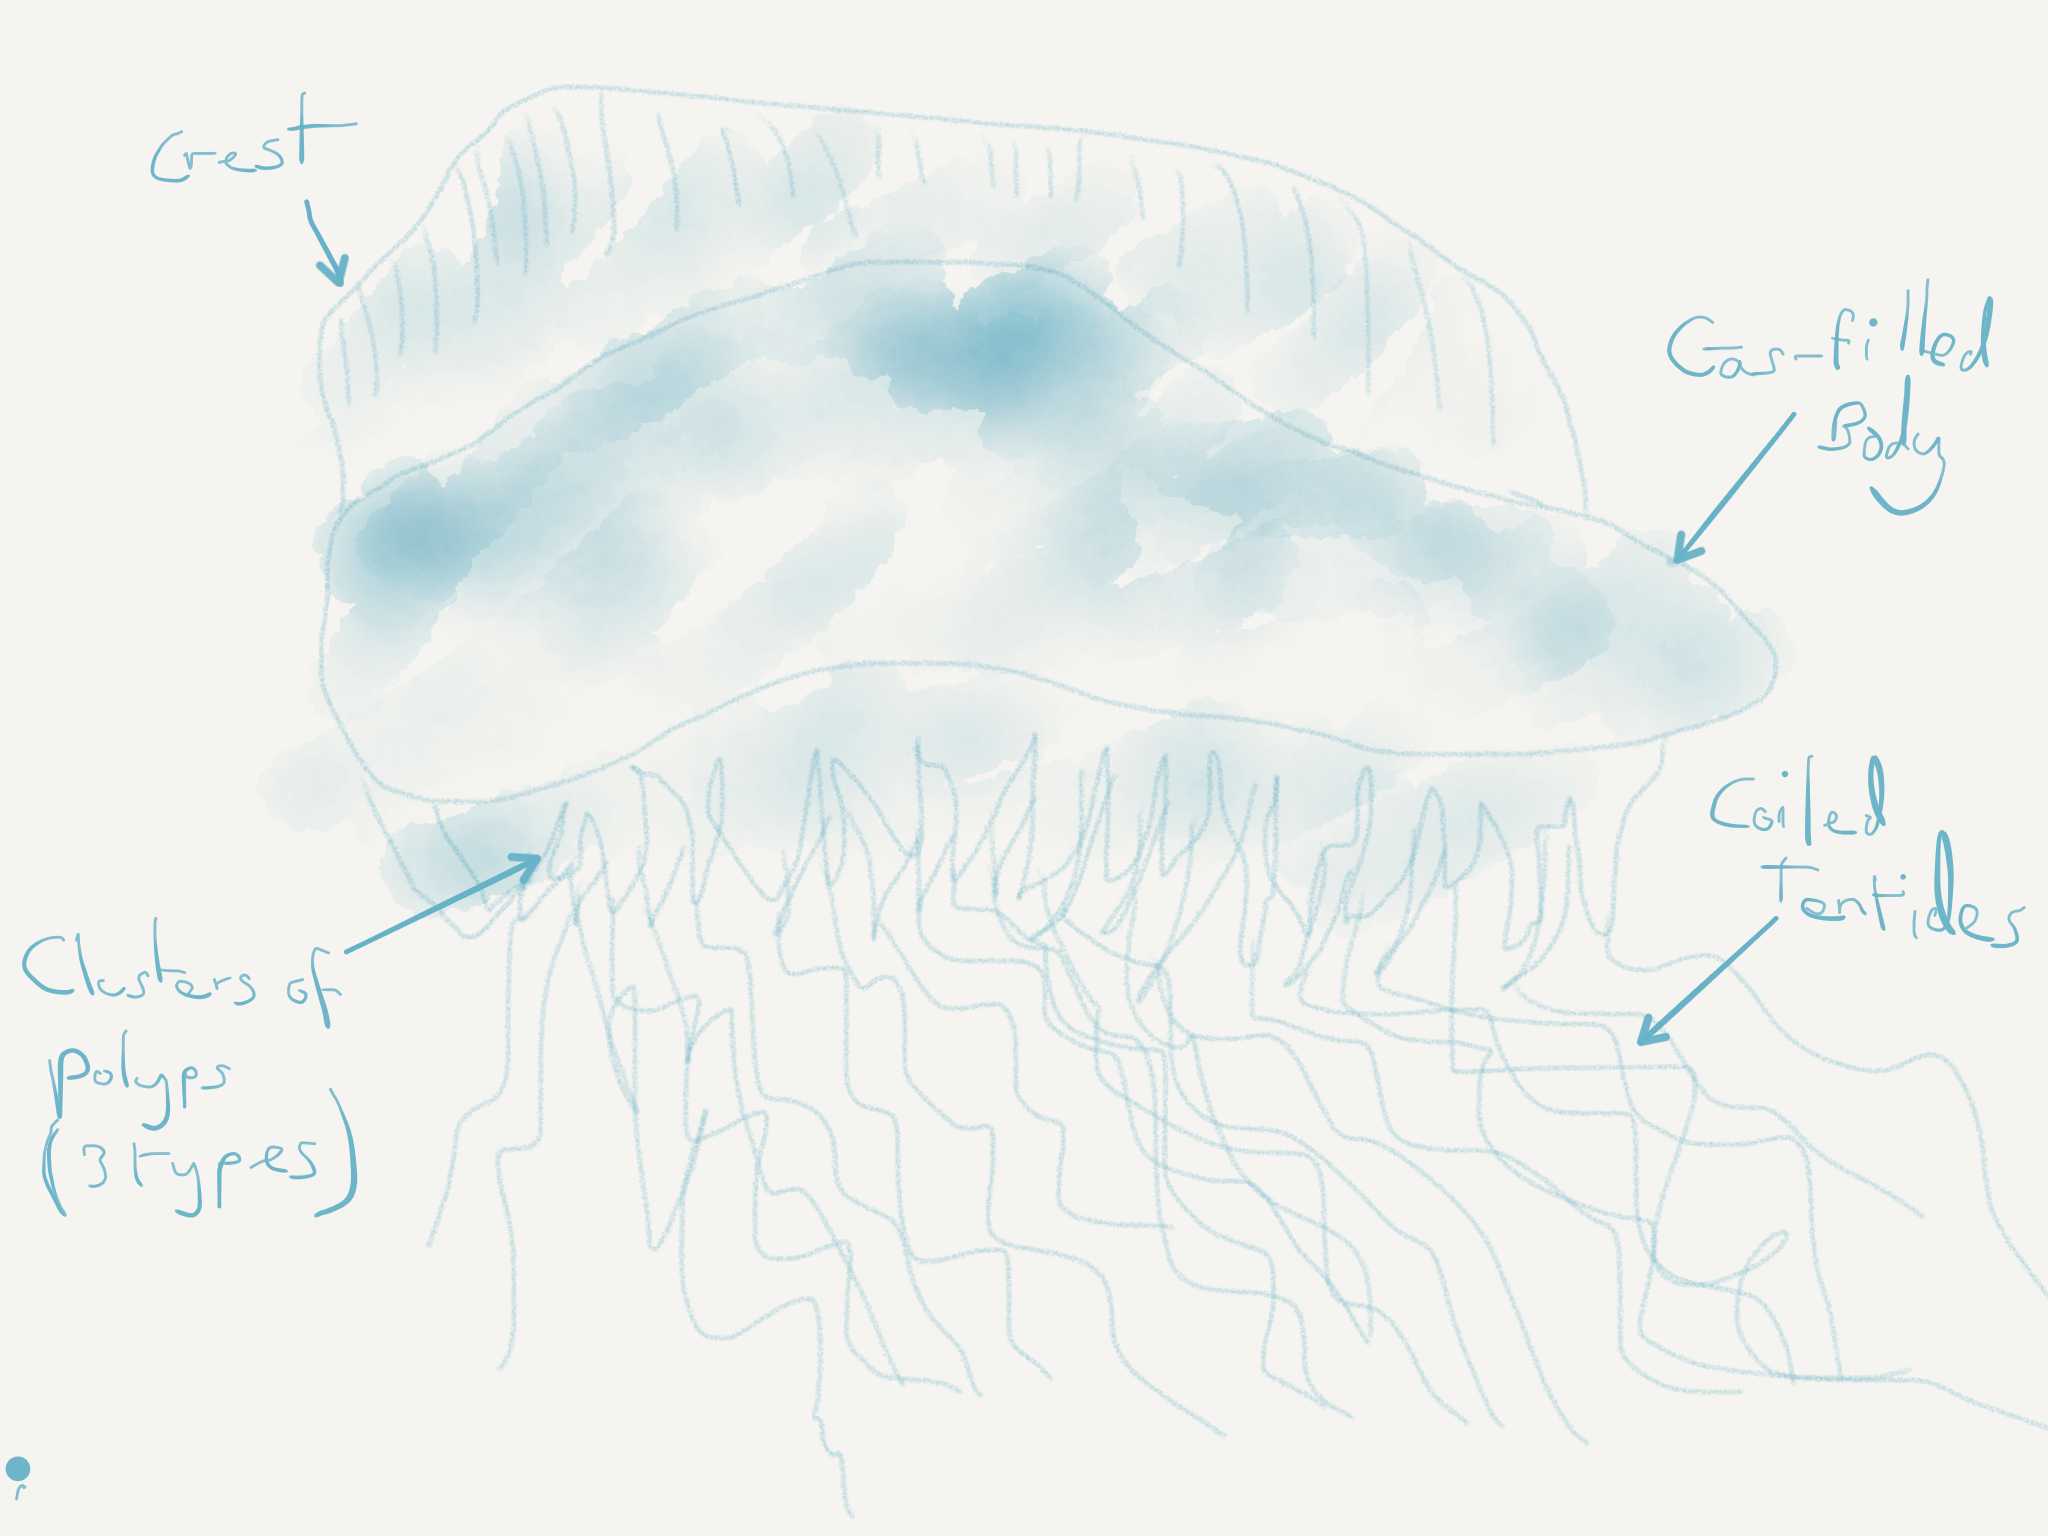 Crest
Gas-filled
Body
Coiled
Tentides
Clusters of
polyps
(3 types)